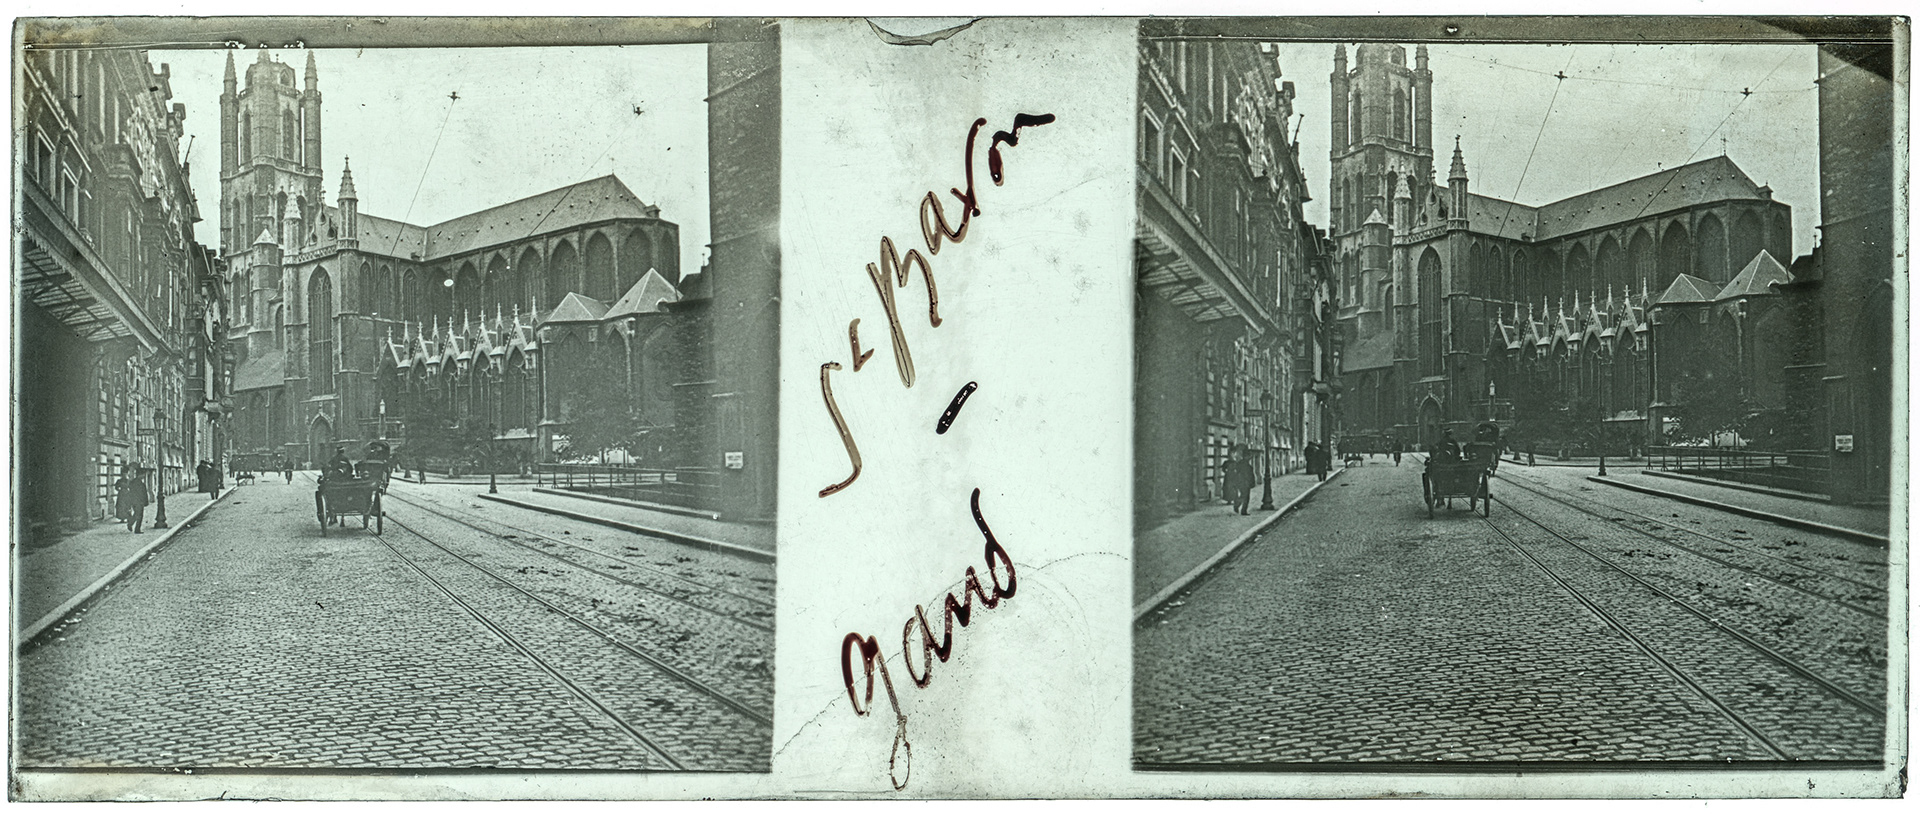 St Bavon
-
gand